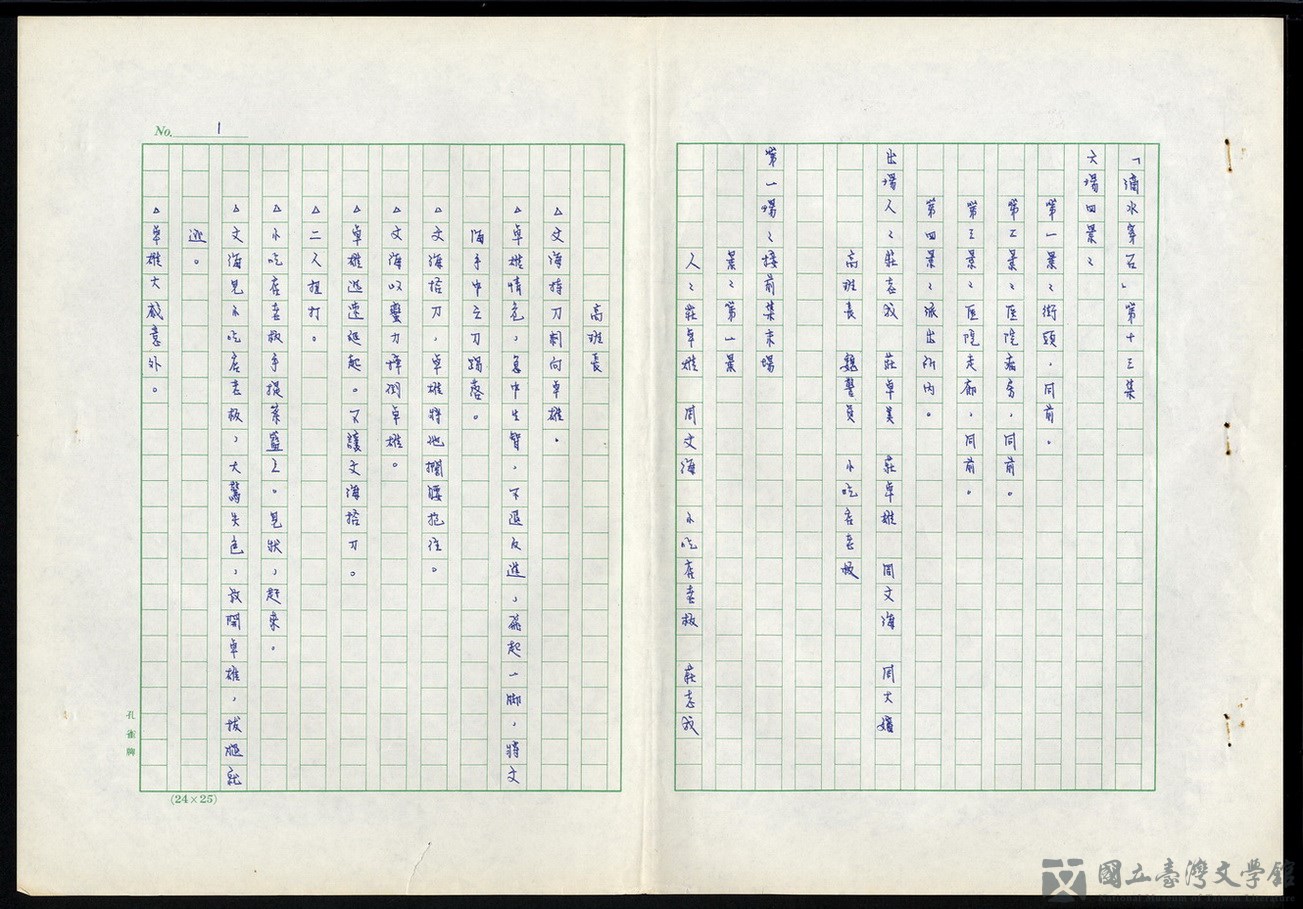 「滴水穿石」第十三集
六場四景:
第一景:街頭,同前。
第二景:医院病房,同前。
第三景:医院走廊,同前。
第四景:派出所内。
出場人:莊志成 莊卓美 莊卓雄 周文海 周大嬸
高班長 魏警員 小吃店老板
第一場:接前集末場
景:第一景
人:莊卓雄 周文海 小吃店老板 莊志成
高班長
△文海持刀刺向卓雄。
△卓雄情急,急中生智,不退反進,飛起一脚,將文
海手中之刀踢落。
△文海拾刀,卓雄將他攔腰抱住。
△文海以蠻力摔倒卓雄。
△卓雄迅速爬起。不讓文海拾刀。
△二人扭打。
△小吃店老板手提菜籃上。見狀,趕來。
△文海見小吃店老板,大驚失色,放開卓雄,拔腿就
逃。
△卓雄大感意外。
No. 1
孔雀牌
(24×25)
國立臺灣文學館
National Museum of Taiwan Literature